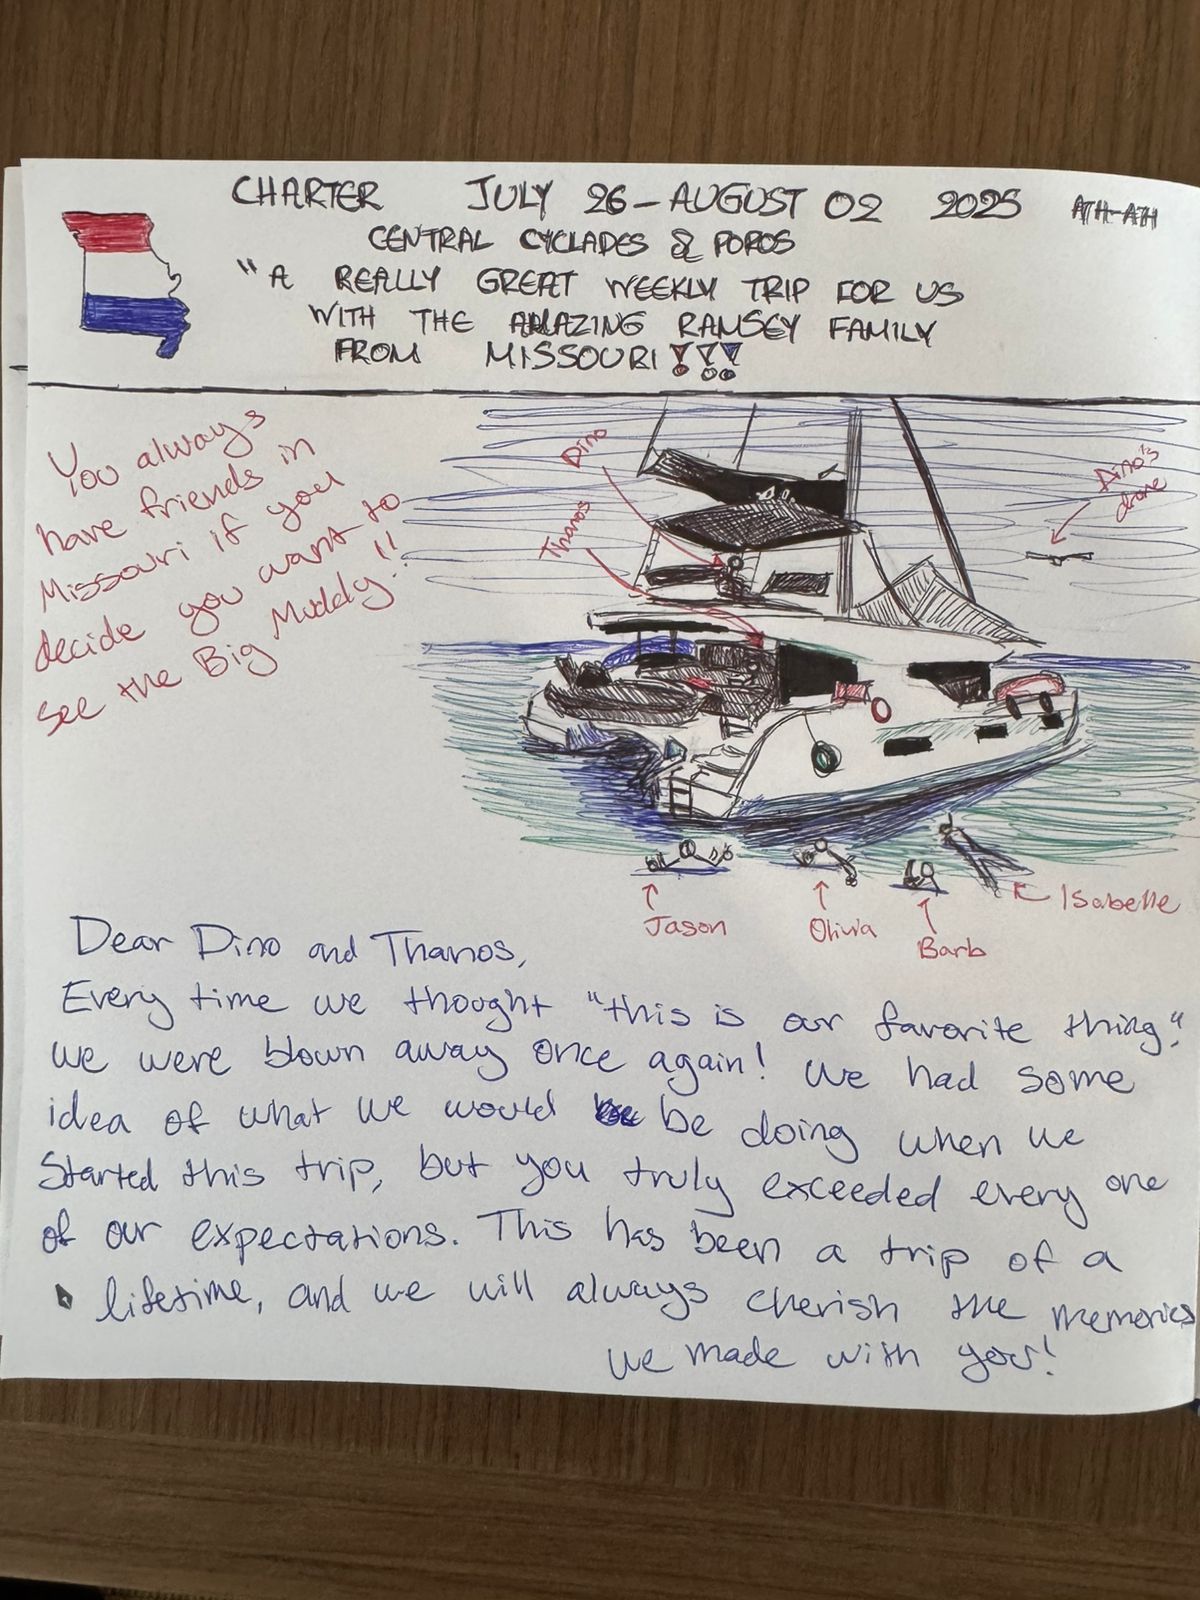 CHARTER JULY 26 - AUGUST 02 2025 ATH-ATH
CENTRAL CYCLADES & POROS
"A REALLY GREAT WEEKLY TRIP FOR US
WITH THE AMAZING RAMSEY FAMILY
FROM MISSOURI!!!
You always
have friends in
Missouri if you
decide you want to
see the Big Muddy!!
Dino
Thanos
Dino's
drone
Jason
Olivia
Barb
Isabelle
Dear Dino and Thanos,
Every time we thought "this is our favorite thing,"
we were blown away once again! We had some
idea of what we would be doing when we
started this trip, but you truly exceeded every one
of our expectations. This has been a trip of a
lifetime, and we will always cherish the memories
we made with you!